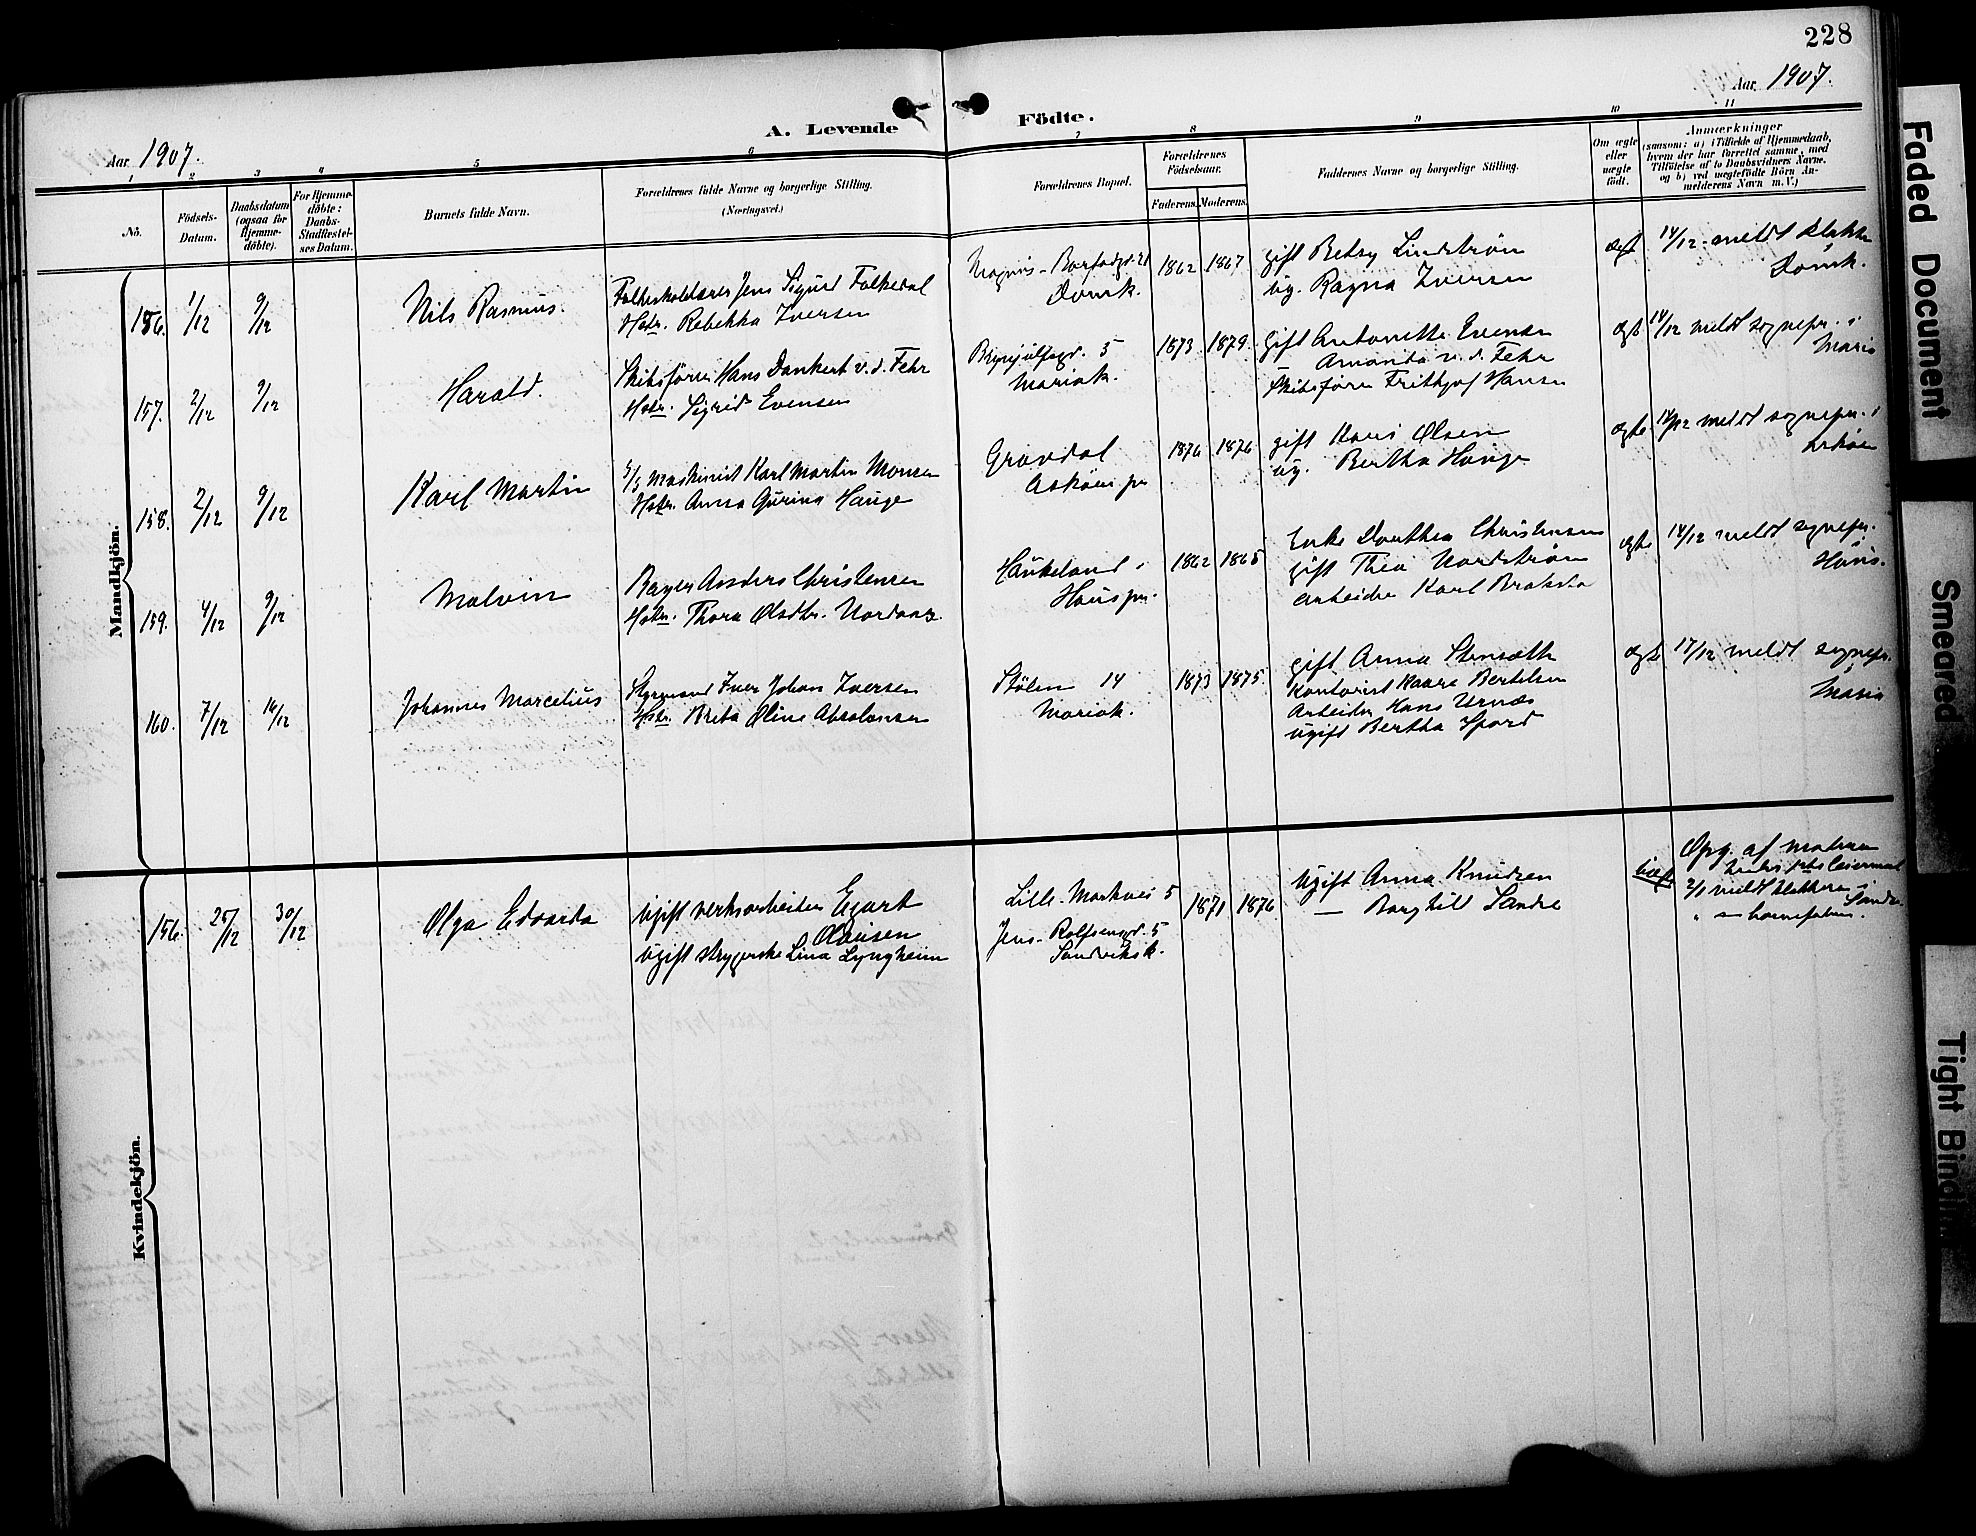 228
Aar 1907.
Aar 1907.
A. Levende Födte.
1 2 3 4 5 6 7 8 9 10 11
No.
Födsels-
Datum.
Daabsdatum
(ogsaa for
Hjemme-
döbte).
For Hjemme-
döbte:
Daabs-
Stadfæstel-
ses Datum.
Barnets fulde Navn.
Forældrenes fulde Navne og borgerlige Stilling.
(Næringsvei.)
Forældrenes Bopæl.
Forældrenes
Födselsaar.
Faderens. Moderens.
Faddernes Navne og borgerlige Stilling.
Om ægte
eller
uægte
födt.
Anmærkninger
(saasom: a) i Tilfælde af Hjemmedaab,
hvem der har forrettet samme, med
Tilföielse af to Daabsvidners Navne,
og b) ved uægtefödte Börn An-
melderens Navn m. V.)
Mandkjön.
156. 1/12 9/12
Nils Rasmus.
Folkeskolelærer Jens Sigurd Folkedal
Hstr. Rebekka Iversen
Magnus-Barfodgd. 21
Domk.
1862 1867
gift Betsy Lindström
ug. Ragna Iversen
ægt
14/12 meldt klokk. i
Domk.
157. 2/12 9/12
Harald.
Skibsförer Hans Dankert v. d. Fehr
Hstr. Sigrid Evensen
Brynjulfsgd. 5
Mariak.
1873 1879.
gift Antonette Evensen
Amanda v. d. Fehr
Skibsförer Frithjof Hansen
ægt
14/12 meldt sognepr. i
Maria
158. 2/12 9/12
Karl Martin
Maskinist Karl Martin Monsen
Hstr. Anna Gurina Hauge
Gravdal
Askøen pr
1876 1876
gift Hans Olsen
ug. Bertha Hauge
ægte
14/12 meldt sognepr. i
Askøen
159. 4/12 9/12
Malvin
Bager Anders Christensen
Hstr. Thora Olsdtr. Nordaas.
Haukeland i
Haus pr.
1862 1865
Enke Dorthea Christensen
gift Thea Nordström
arbeider Karl Brakstad
ægte
14/12 meldt sognepr. i
Haus.
160. 7/12 16/12
Johannes Marcelius
Styrmand Iver Johan Iversen
Hstr. Brita Oline Absalonsen
Stølen 14
Mariak.
1873 1875.
gift Anna Stensæth
Kontorist Kaare Bertelsen
Arbeider Hans Urnæs
ugift Bertha Spord
ægt
17/12 meldt sognepr. i
Maria
Kvindekjön.
156. 25/12 30/12
Olga Edvarda
Ugift verksarbeider Egart
Clausen
Ugift strygerske Lina Lyngheim
Lille-Markvei 5
Jens-Rolfsensgd. 5
Sandviksk.
1871 1876
Ugift Anna Knudsen
— Borghild Sandre
uæ.
Opg. af moderen
2/1 meldt klokkeren i